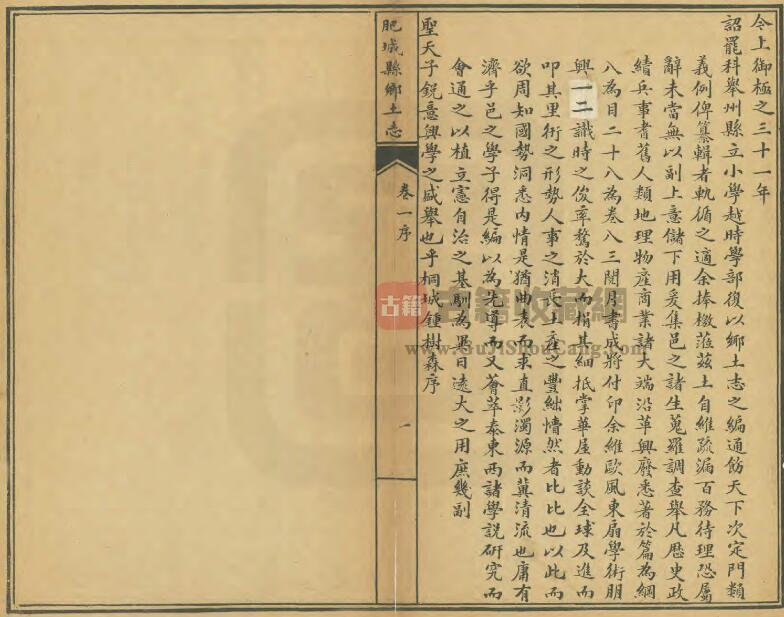 今上御極之三十一年
詔罷科舉州縣立小學越時學部復以鄉土志之編通飭天下次定門類
義例俾纂輯者軌循之適余捧檄蒞茲土自維疏漏百務待理恐屬
辭未當無以副上意儲下用爰集邑之諸生蒐羅調查舉凡歷史政
績兵事耆舊人類地理物產商業諸大端沿革興廢悉著於篇為綱
八為目二十八為卷八三閱月書成將付印余維歐風東扇學術朋
興一二識時之俊率騖於大而捐其細抵掌華屋動談全球及進而
叩其里術之形勢人事之消長土產之豐絀懵然者比比也以此而
欲周知國勢洞悉內情是猶曲表而求直影濁源而冀清流也庸有
濟乎邑之學子得是編以為先導而又薈萃泰東西諸學說研究而
會通之以植立憲自治之基馴為異日遠大之用庶幾副
聖天子銳意興學之盛舉也乎桐城鍾樹森序
肥城縣鄉土志
卷一序
一
古籍
古籍收藏網
www.GuJiShouCang.com